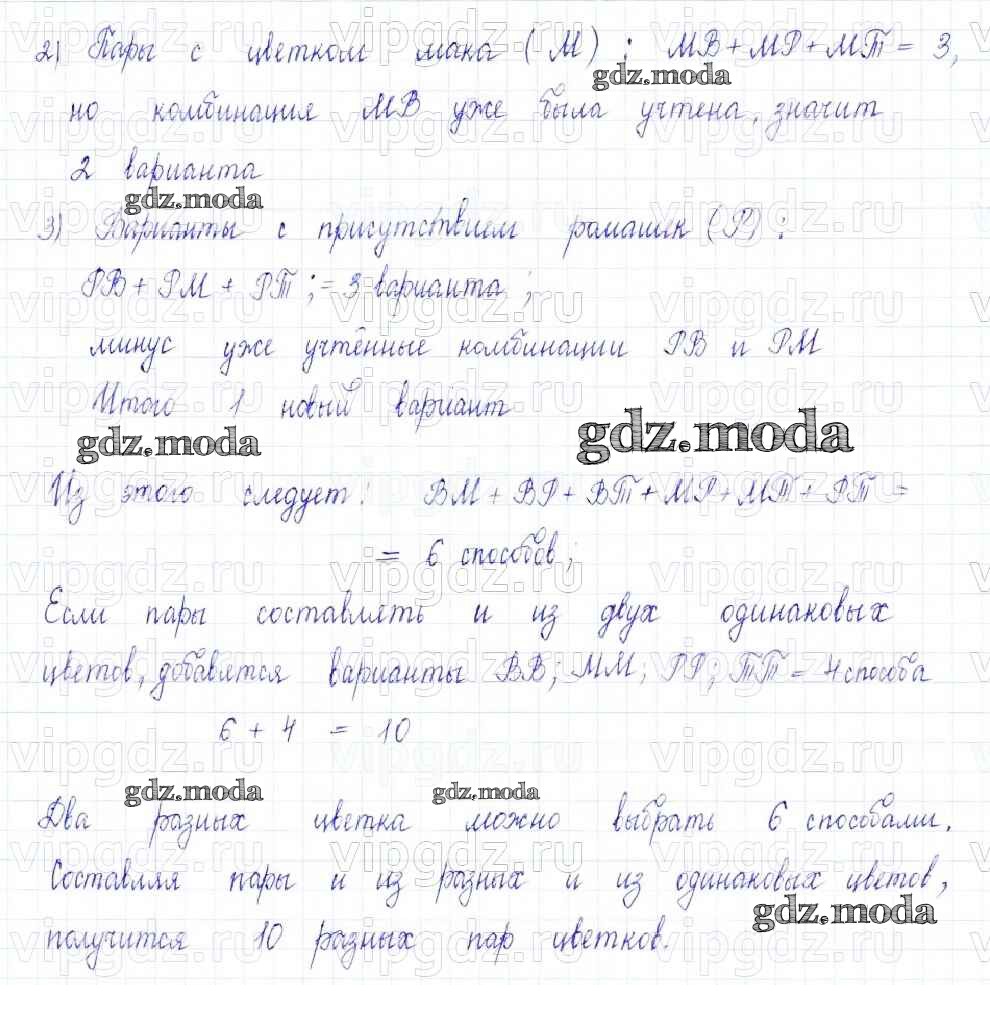 2) Пары с цветком мака (М): МВ + МР + МТ = 3,
gdz.moda
но комбинация МВ уже была учтена, значит
2 варианта
gdz.moda
3) Варианты с присутствием ромашек (Р):
РВ + РМ + РТ; = 3 варианта;
минус уже учтённые комбинации РВ и РМ
Итого 1 новый вариант
gdz.moda
gdz.moda
Из этого следует: ВМ + ВР + ВТ + МР + МТ + РТ =
= 6 способов;
Если пары составлять и из двух одинаковых
цветов, добавятся варианты ВВ; ММ; РР; ТТ = 4 способа
6 + 4 = 10
gdz.moda
gdz.moda
Два разных цветка можно выбрать 6 способами.
Составляя пары и из разных и из одинаковых цветов,
gdz.moda
получится 10 разных пар цветков.
vipgdz.ru